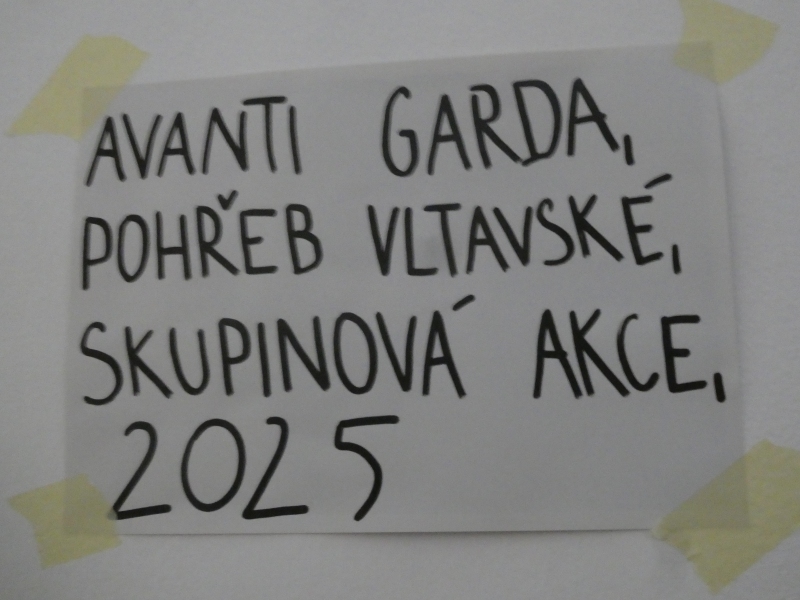 AVANTI GARDA,
POHŘEB VLTAVSKÉ,
SKUPINOVÁ AKCE,
2025